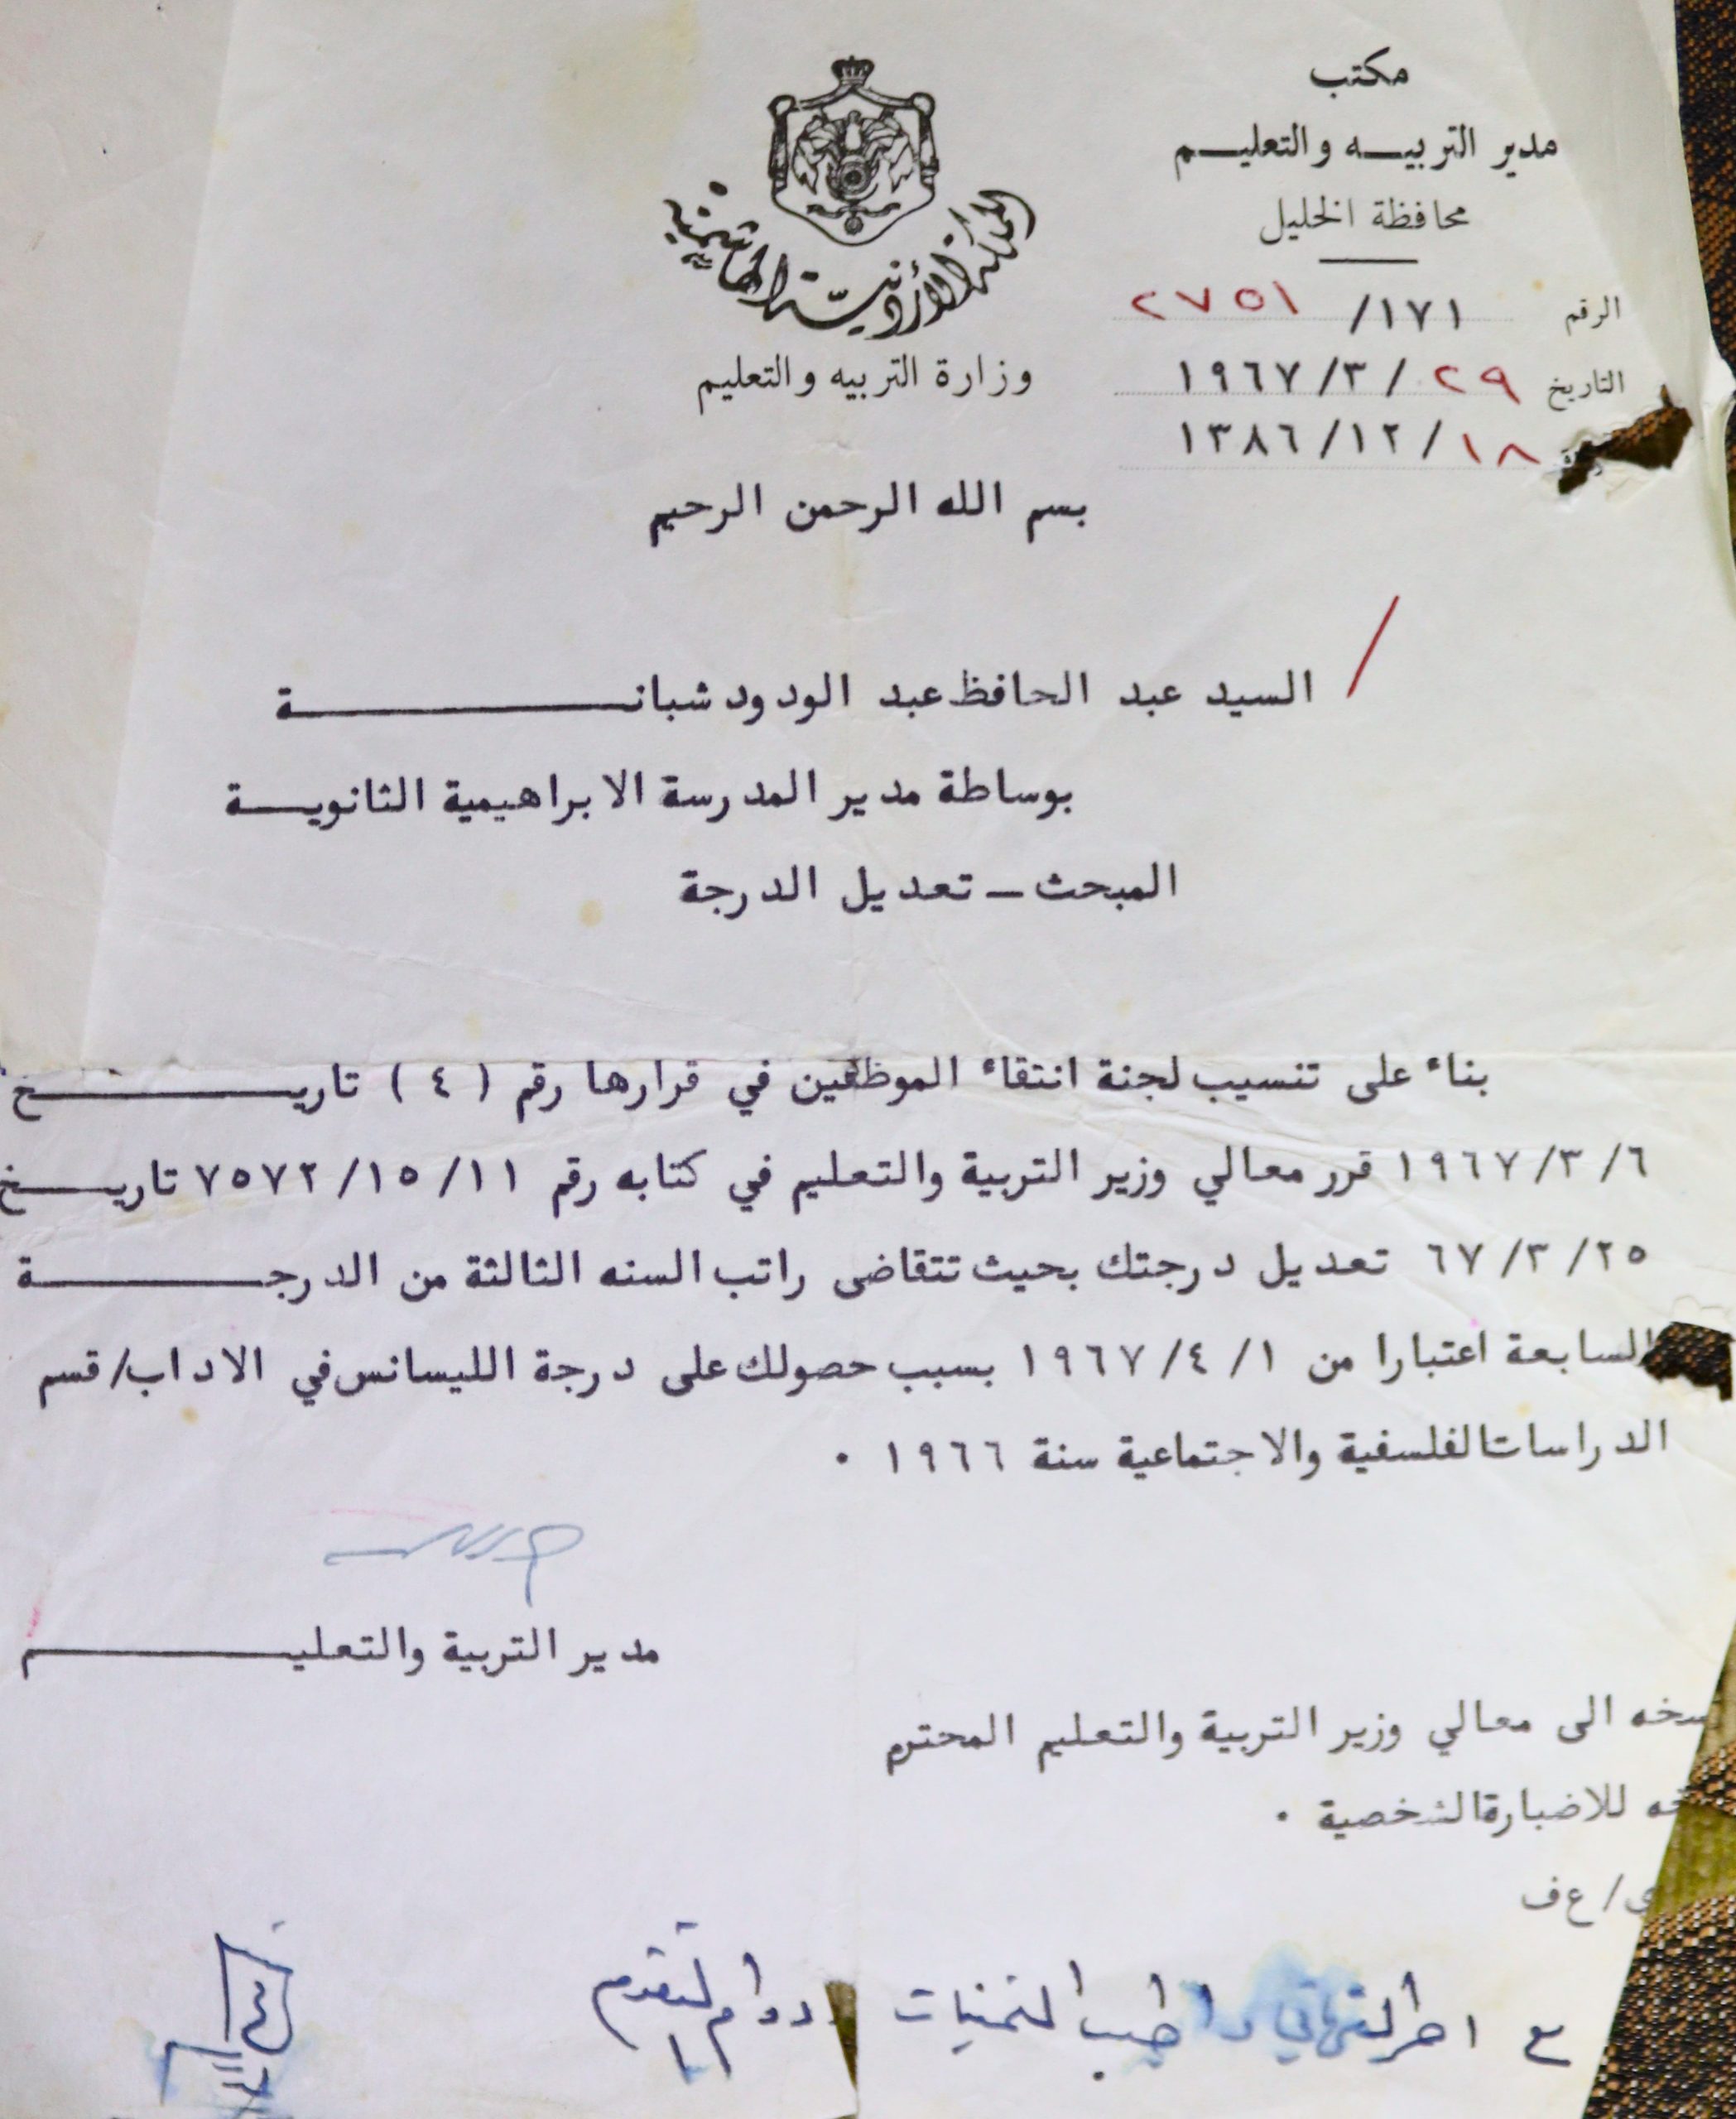 مكتب
مدير التربيه والتعليم
محافظة الخليل
المملكة الأردنية الهاشمية
وزارة التربيه والتعليم
الرقم ١٧١/ ٢٧٥١
التاريخ ٢٩/٣/١٩٦٧
١٨/١٢/١٣٨٦
بسم الله الرحمن الرحيم
السيد عبد الحافظ عبد الودود شبانة
بوساطة مدير المدرسة الابراهيمية الثانوية
المبحث - تعديل الدرجة
بناء على تنسيب لجنة انتقاء الموظفين في قرارها رقم ( ٤ ) تاريخ
٦/٣/١٩٦٧ قرر معالي وزير التربية والتعليم في كتابه رقم ١١/١٥/٧٥٧٢ تاريخ
٢٥/٣/٦٧ تعديل درجتك بحيث تتقاضى راتب السنه الثالثة من الدرجة
السابعة اعتبارا من ١/٤/١٩٦٧ بسبب حصولك على درجة الليسانس في الاداب/قسم
الدراسات الفلسفية والاجتماعية سنة ١٩٦٦ .
مدير التربية والتعليم
نسخه الى معالي وزير التربية والتعليم المحترم
للاضبارة الشخصية .
/ع ف
مع احر التهاني واطيب التمنيات ودوام التقدم